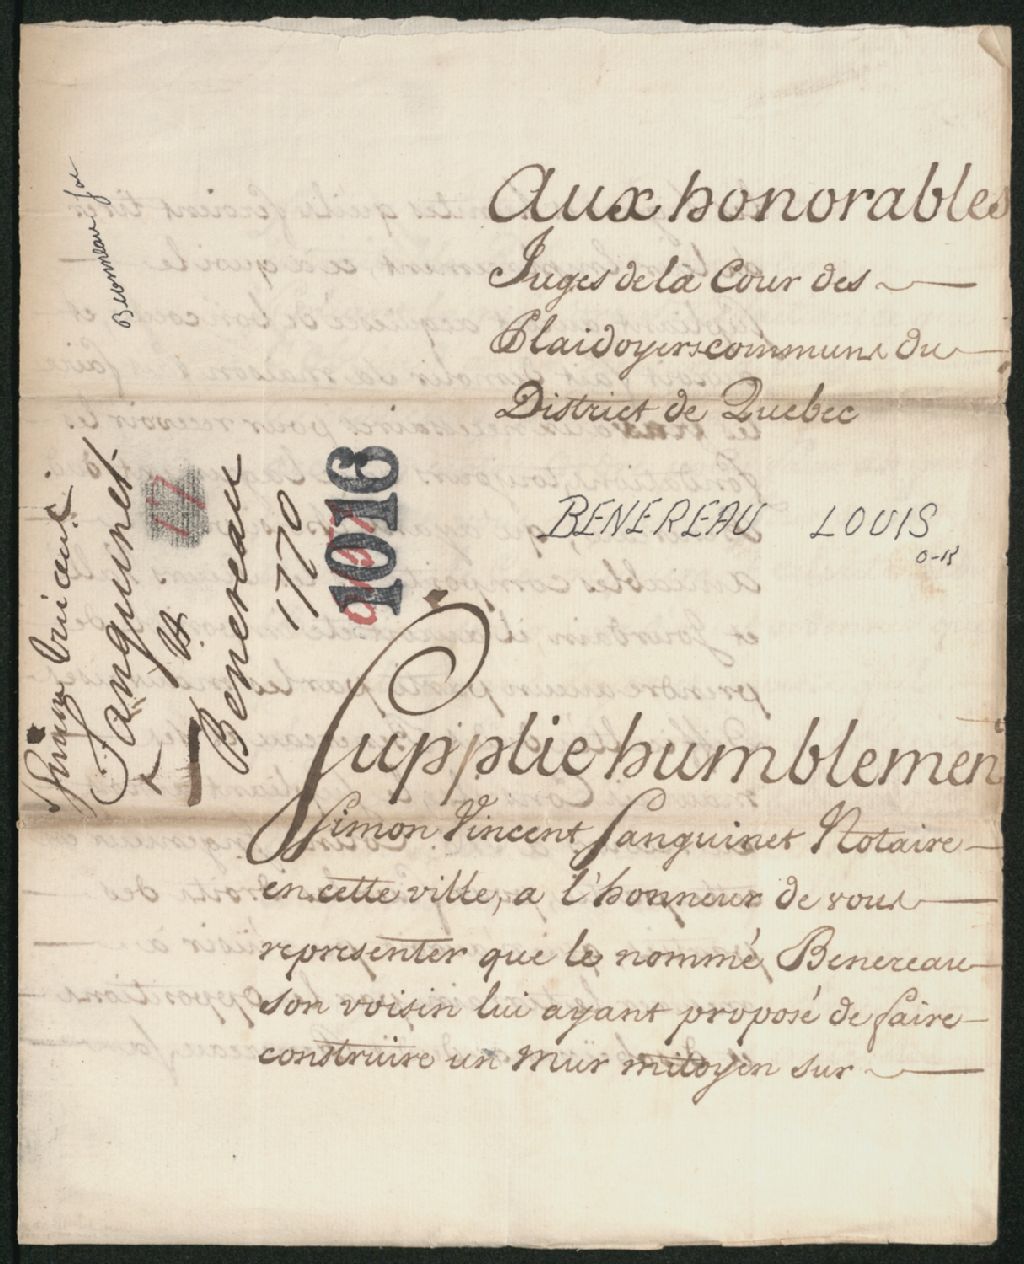 Aux honorables
Juges de la Cour des
Plaidoyers communs du
District de Quebec
BENEREAU LOUIS
0-15
Supplie humblemen
Simon Vincent Sanguinet Notaire
en cette ville, a l'honneur de vous
representer que le nommé Benereau
son voisin lui ayant proposé de faire
construire un mur mitoyen sur
Sanguinet
vs
Benereau
1770
17
1016